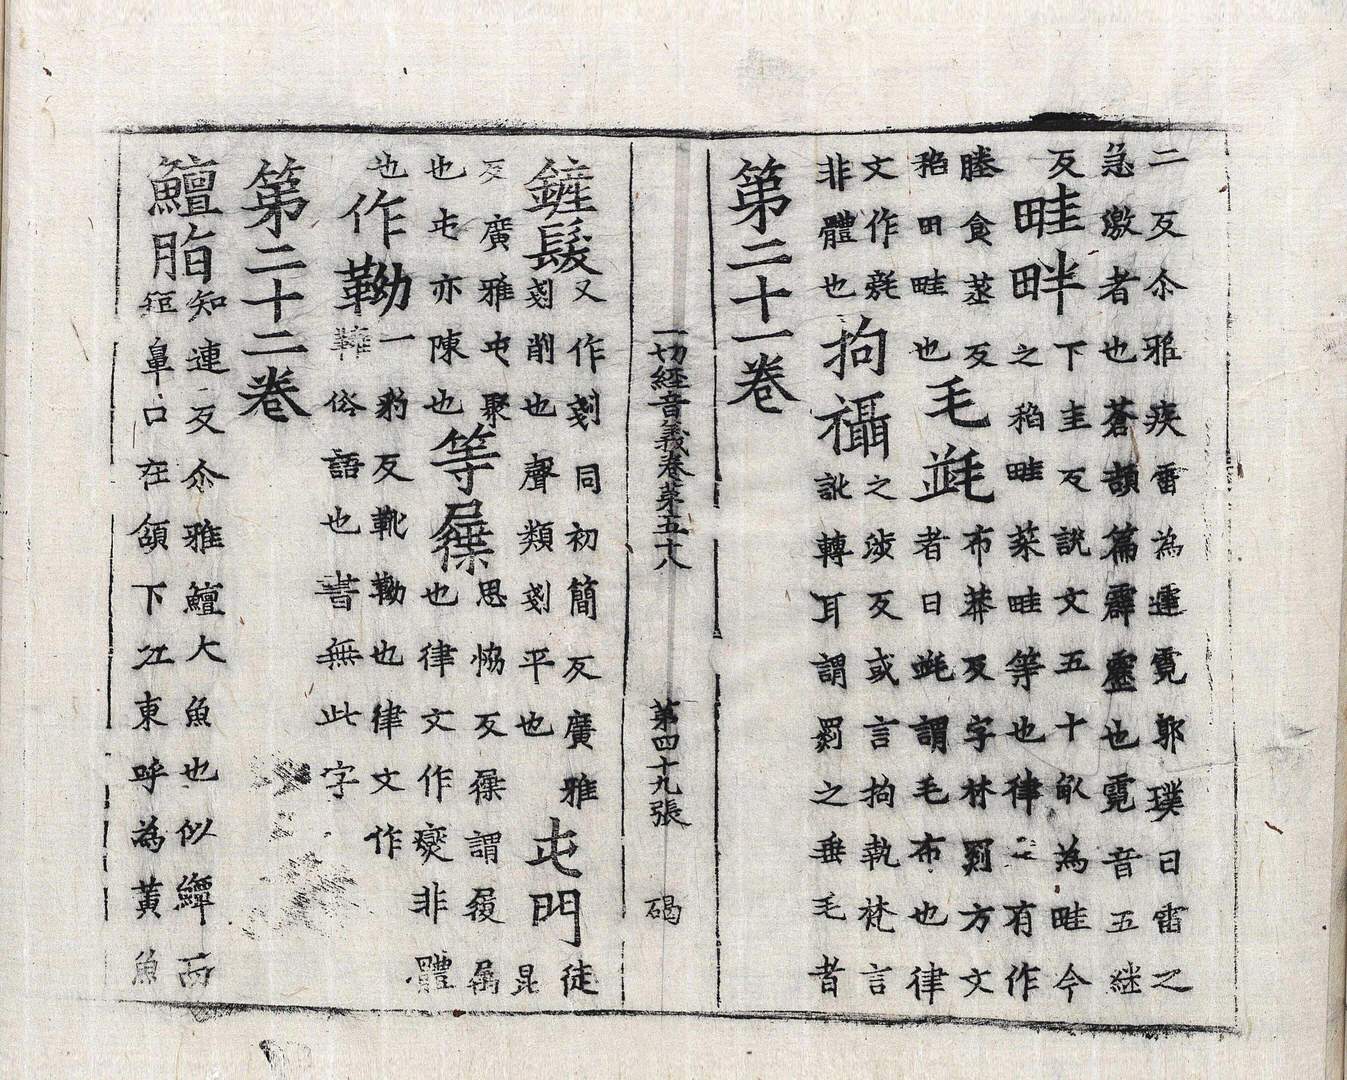 二反尒雅疾雷為霆霓郭璞曰雷之
急激者也蒼頡篇霹靂也霓音五結
反
畦畔
下圭反說文五十畝為畦今
之稻畦菜畦等也律文有作
塍食蒸反
稻田畦也
毛
布莽反字林罽方文
者曰謂毛布也律
文作
非體也
拘攝
之涉反或言拘執梵言
訛轉耳謂罽之垂毛者
第二十一卷
一切經音義卷第五十八 第四十九張 碣
鏟髮
又作剗同初簡反廣雅
剗削也聲類剗平也
屯門
徒
昆
反廣雅屯聚
也屯亦陳也
等屧
思協反屧謂履屬
也律文作非體
也
作靿
一豹反靴靿也律文作
俗語也書無此字
第二十二卷
鱣脂
知連反尒雅鱣大魚也似鱏而
短鼻口在頷下江東呼為黃魚